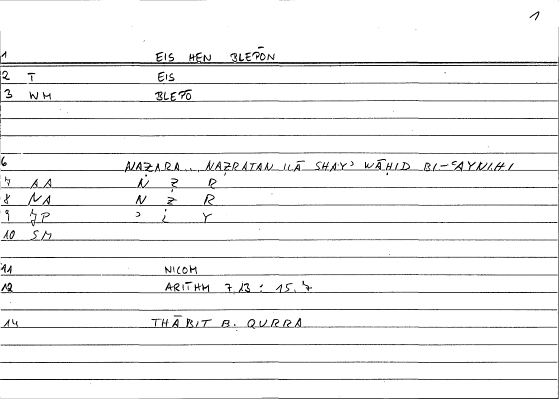 1
1 EIS HEN BLEPŌN
2 T EIS
3 WH BLEPŌ
6 NAẒARA... NAẒRATAN ILĀ SHAYʾ WĀḤID BI-ʿAYNIHI
7 AA N Ẓ R
8 NA N Ẓ R
9 JP ʾ L Y
10 SM
11 NICOM
12 ARITHM 7.13 : 15.7
14 THĀBIT B. QURRA